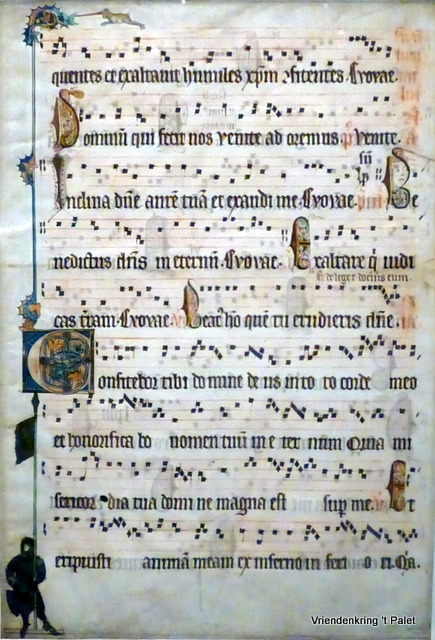 quentes et exaltavit humiles xpm confitentes. Evovae.
Dominum qui fecit nos venite adoremus. p venite.
Inclina dne aurem tuā et exaudi me. Evovae. Be
nedictus dns in eternū. Evovae. Exaltare q iudi
cas terram. Evovae. Beat' ho quē tu erudieris dne.
et de lege tua docueris eum.
Confitebor tibi domine deus in toto corde meo
et honorificabo nomen tuū in eternum Quia mi
sericordia tua domine magna est super me. Et
eripuisti animā meam ex inferno inferiori. Q'a.
Vriendenkring 't Palet